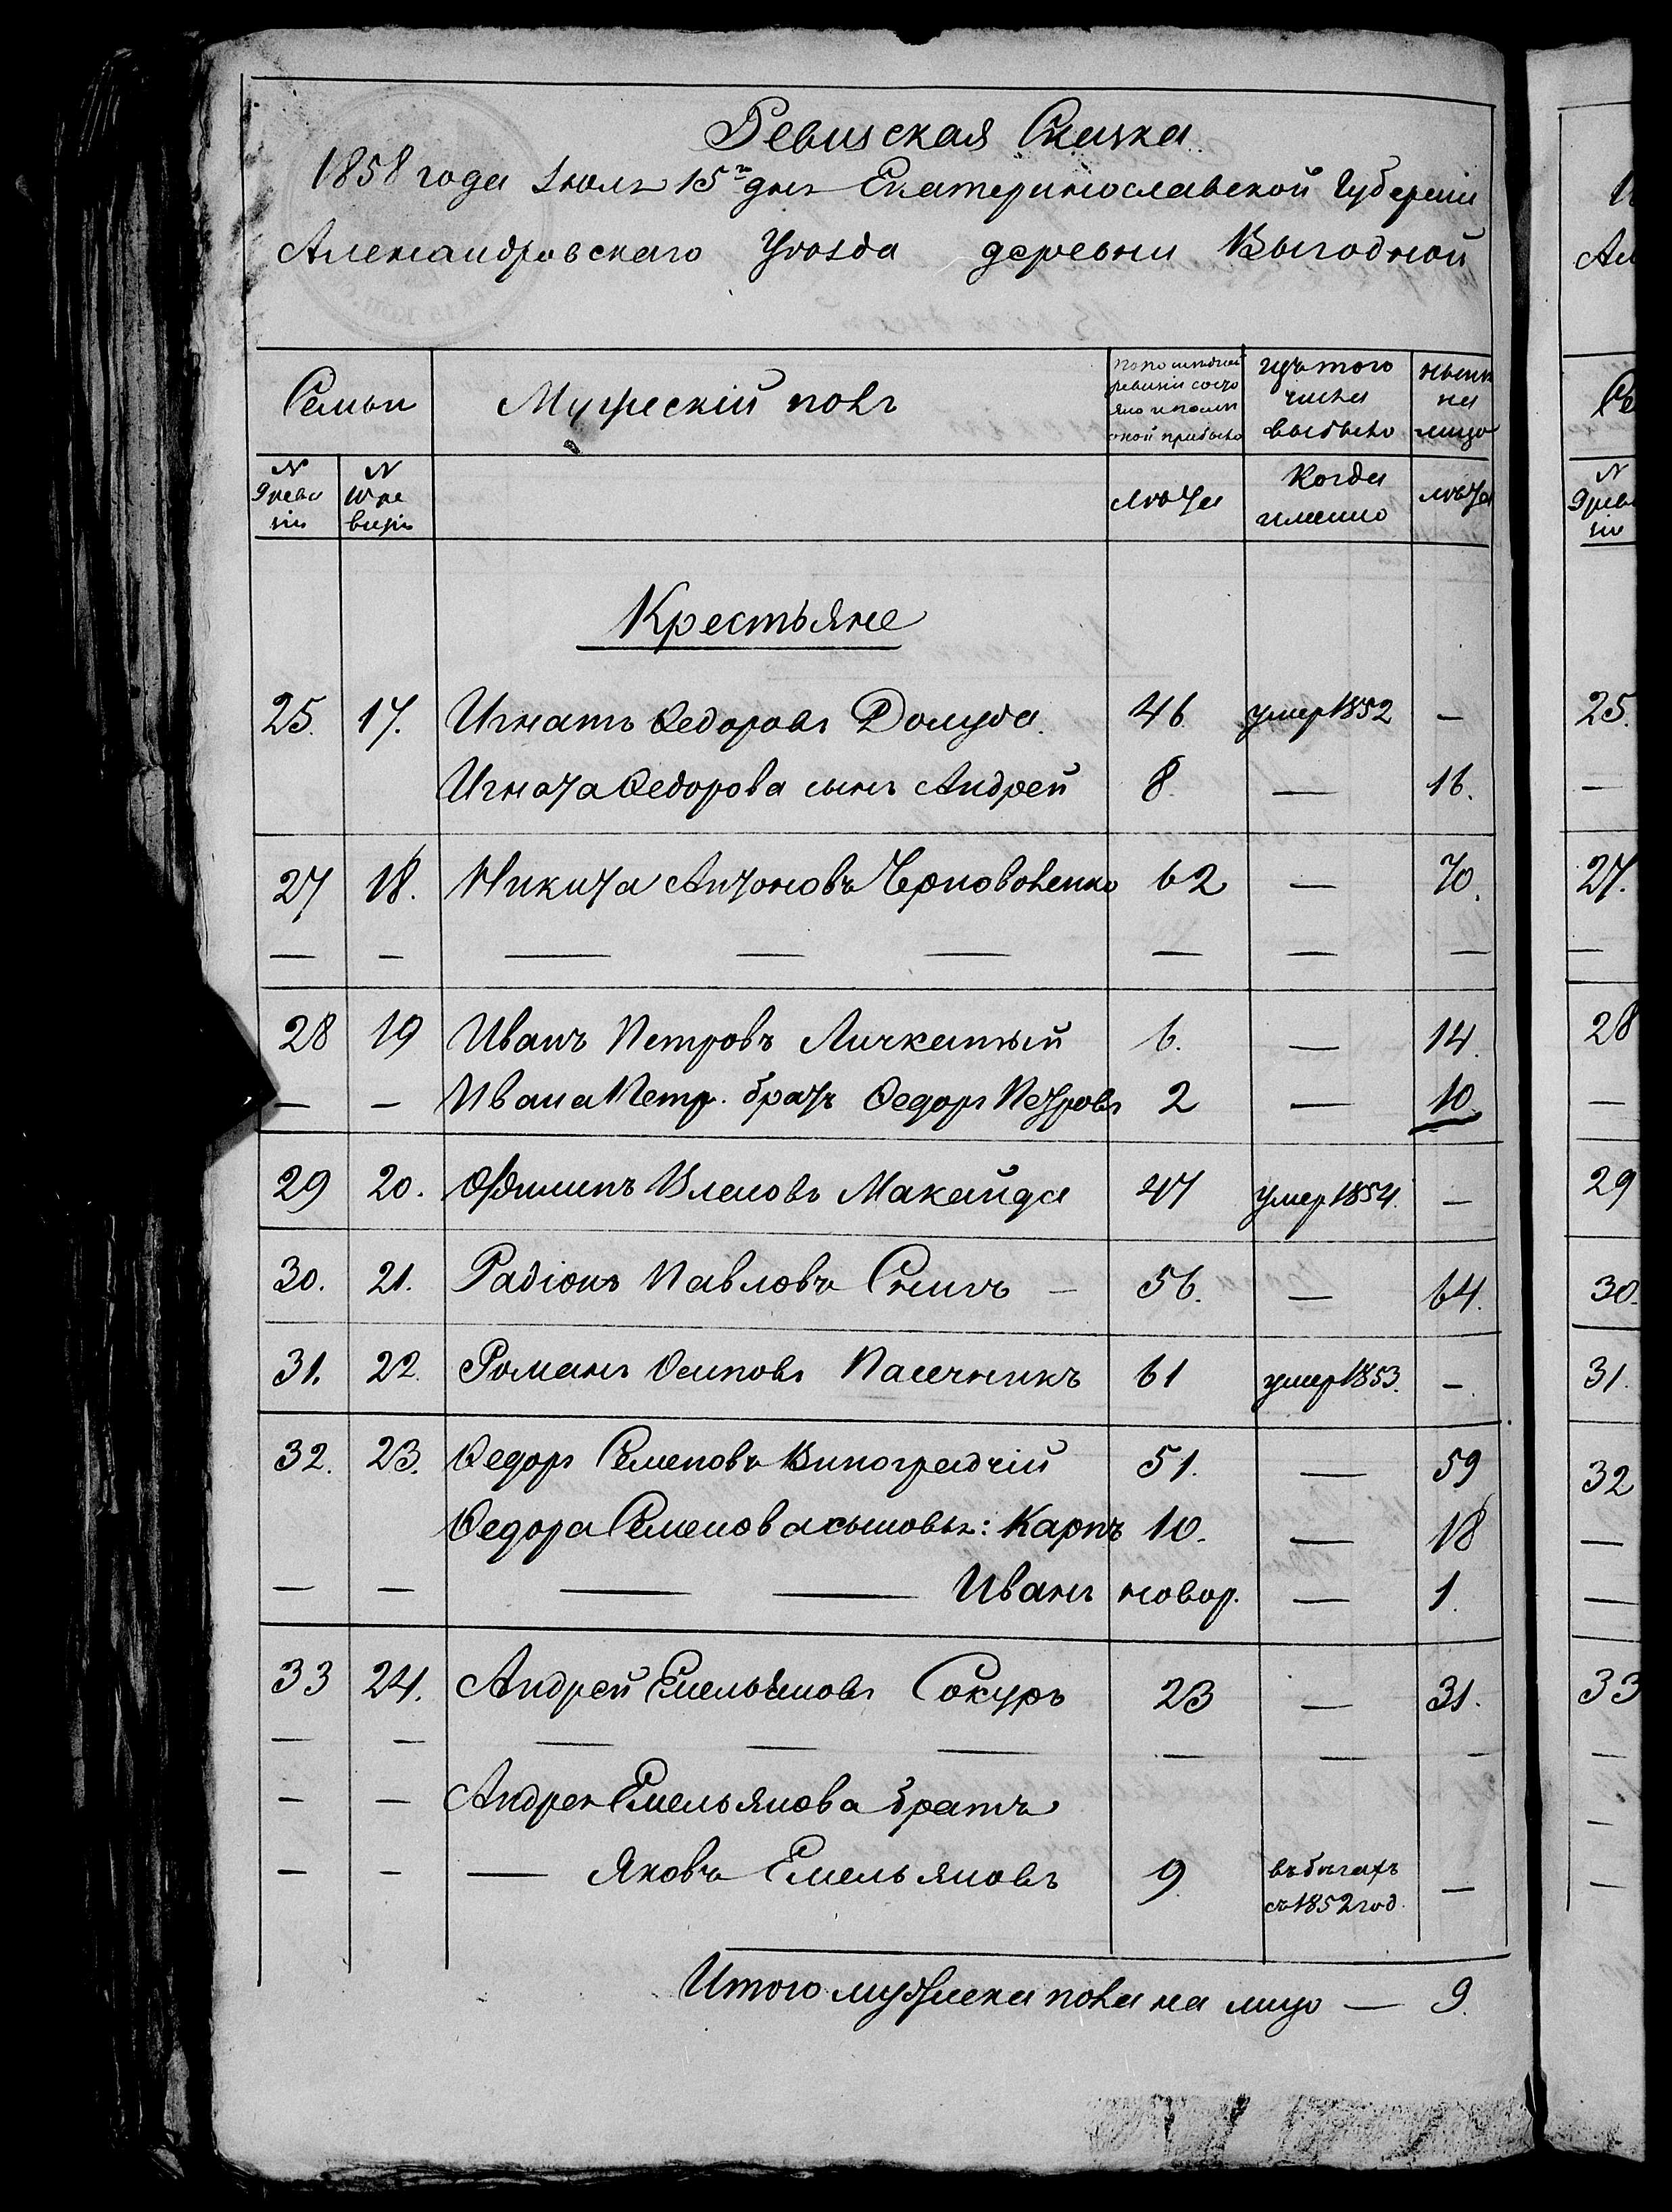 Ревизская Сказка
1858 года Iюля 15го дня Екатеринославской Губернiи
Александровскаго Уѣзда деревни Выгодной
Семьи
Мужескiй полъ
По последней ревизiи состояло и после оной прибыло
Изъ того числа выбыло
Ныне на лицо
N 9 ревизiи
N 10 ревизiи
Лѣта
Когда именно
Лѣта
Крестьяне
25. 17. Игнатъ Ѳедоровъ 46 умер 1852 —
Игната Ѳедорова сынъ Андрей 8. — 16.
27 18. Никита Антоновъ Черноволенко 62 — 70.
— — — — — — — —
28 19 Иванъ Петровъ Личкатый 6. — 14.
— — Ивана Петр. братъ Ѳедоръ Петровъ 2 — 10
29 20. Филипъ Власовъ Макайда 47 умер 1854. —
30. 21. Радiонъ Павловъ — 56. — 64.
31. 22. Романъ Осиповъ Пасечникъ 61 умер 1853. —
32. 23. Ѳедоръ Семеновъ Виноградчiй 51. — 59
Ѳедора Семенова сыновья: Карпъ 10. — 18
— — — — Иванъ новор. — 1.
33 24. Андрей Емельяновъ Сокуръ 23 — 31.
— — — — — — — —
— — Андрея Емельянова братъ
— — — Яковъ Емельяновъ 9. въ бѣгахъ съ 1852 год. —
Итого мужеска пола на лицо — 9.
N 9 ревизiи
25.
—
27.
—
28
—
29
30.
31.
32
—
—
33
—
—
—